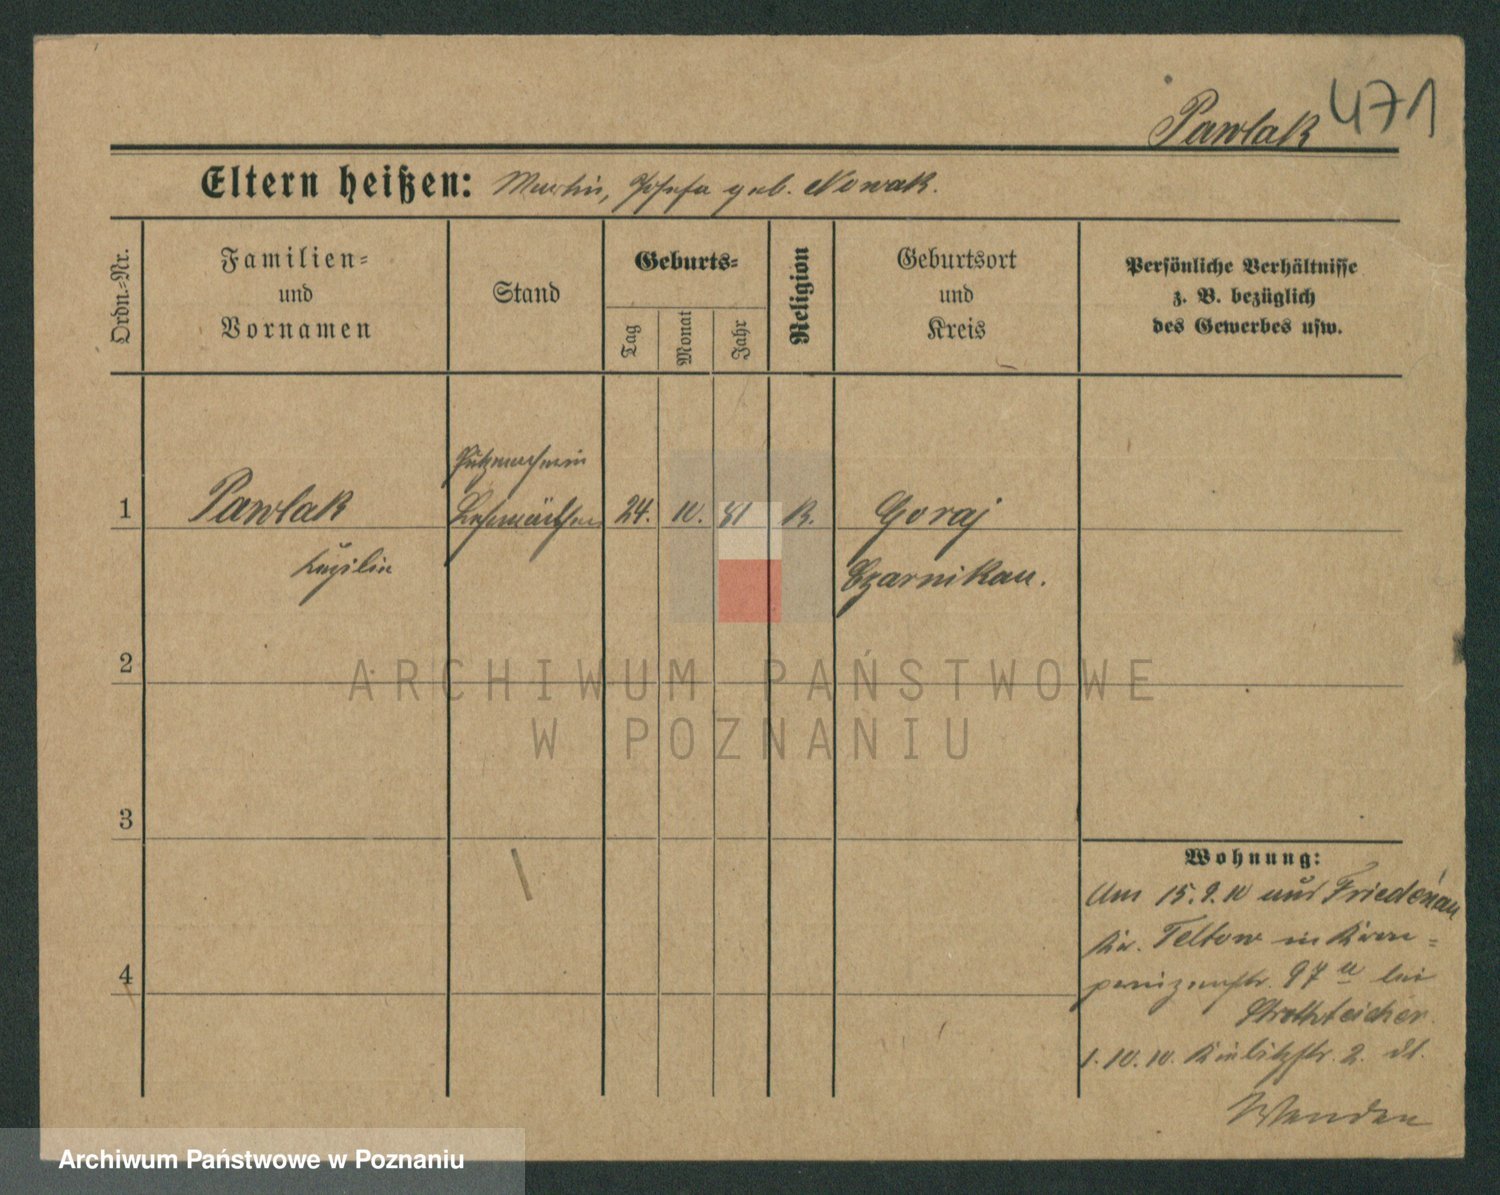 Pawlak 471
Eltern heißen: Martin, Josefa geb. Nowak.
Ordn.=Nr.
Familien=
und
Vornamen
Stand
Geburts=
Tag
Monat
Jahr
Religion
Geburtsort
und
Kreis
Persönliche Verhältnisse
z. B. bezüglich
des Gewerbes usw.
Putzmacherin
1 Pawlak 24. 10. 81 K. Goraj
Czarnikau.
2
3
4
Wohnung:
Am 15.9.10 aus Friedenau
Kr. Teltow in Kron=
prinzenstr. 97 a bei
Strothteicher.
1.10.10. 2.
ARCHIWUM PAŃSTWOWE
W POZNANIU
Archiwum Państwowe w Poznaniu